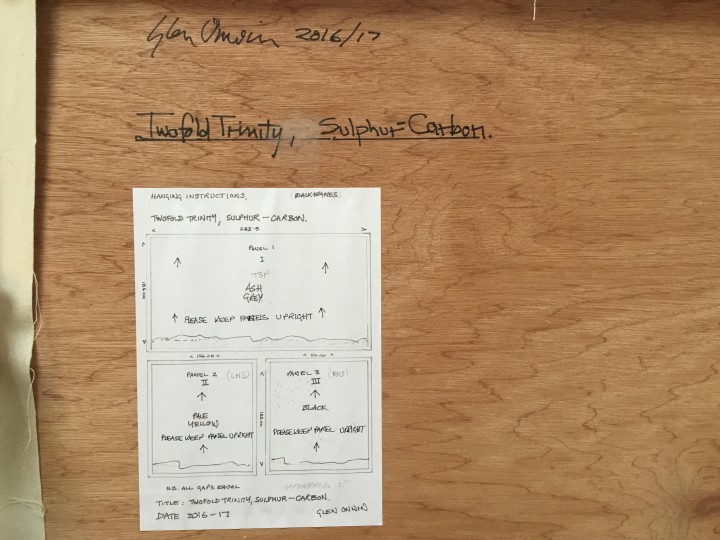 Glen Onwin 2016/17
Twofold Trinity, Sulphur-Carbon.
HANGING INSTRUCTIONS. (BLACK FRAMES)
TWOFOLD TRINITY, SULPHUR-CARBON.
PANEL 1
I
TOP
ASH
GREY
PLEASE KEEP PANELS UPRIGHT
PANEL 2 (LHS)
II
PALE
YELLOW
PLEASE KEEP PANEL UPRIGHT
PANEL 3 (RHS)
III
BLACK
PLEASE KEEP PANEL UPRIGHT
N.B. ALL GAPS EQUAL
TITLE: TWOFOLD TRINITY, SULPHUR-CARBON.
DATE 2016-17 GLEN ONWIN